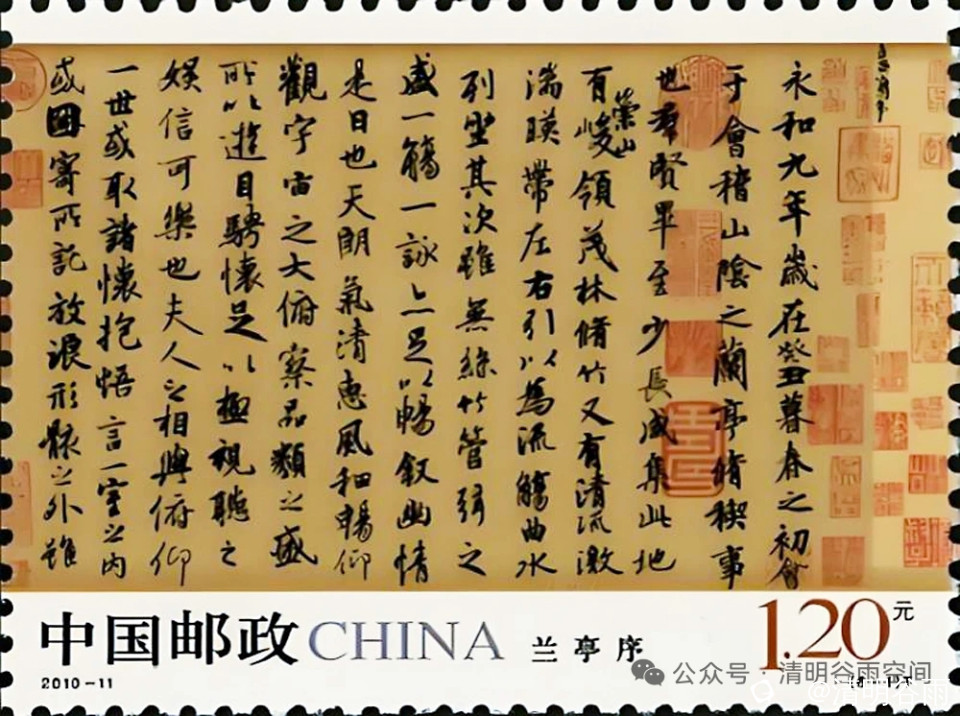 永和九年歲在癸丑暮春之初會
于會稽山陰之蘭亭脩稧事
也羣賢畢至少長咸集此地
有崇山峻領茂林脩竹又有清流激
湍暎帶左右引以為流觴曲水
列坐其次雖無絲竹管弦之
盛一觴一詠亦足以暢叙幽情
是日也天朗氣清惠風和暢仰
觀宇宙之大俯察品類之盛
所以遊目騁懷足以極視聽之
娛信可樂也夫人之相與俯仰
一世或取諸懷抱悟言一室之內
或因寄所託放浪形骸之外雖
中国邮政CHINA 兰亭序 1.20元
2010-11
公众号·清明谷雨空间
@清明谷雨